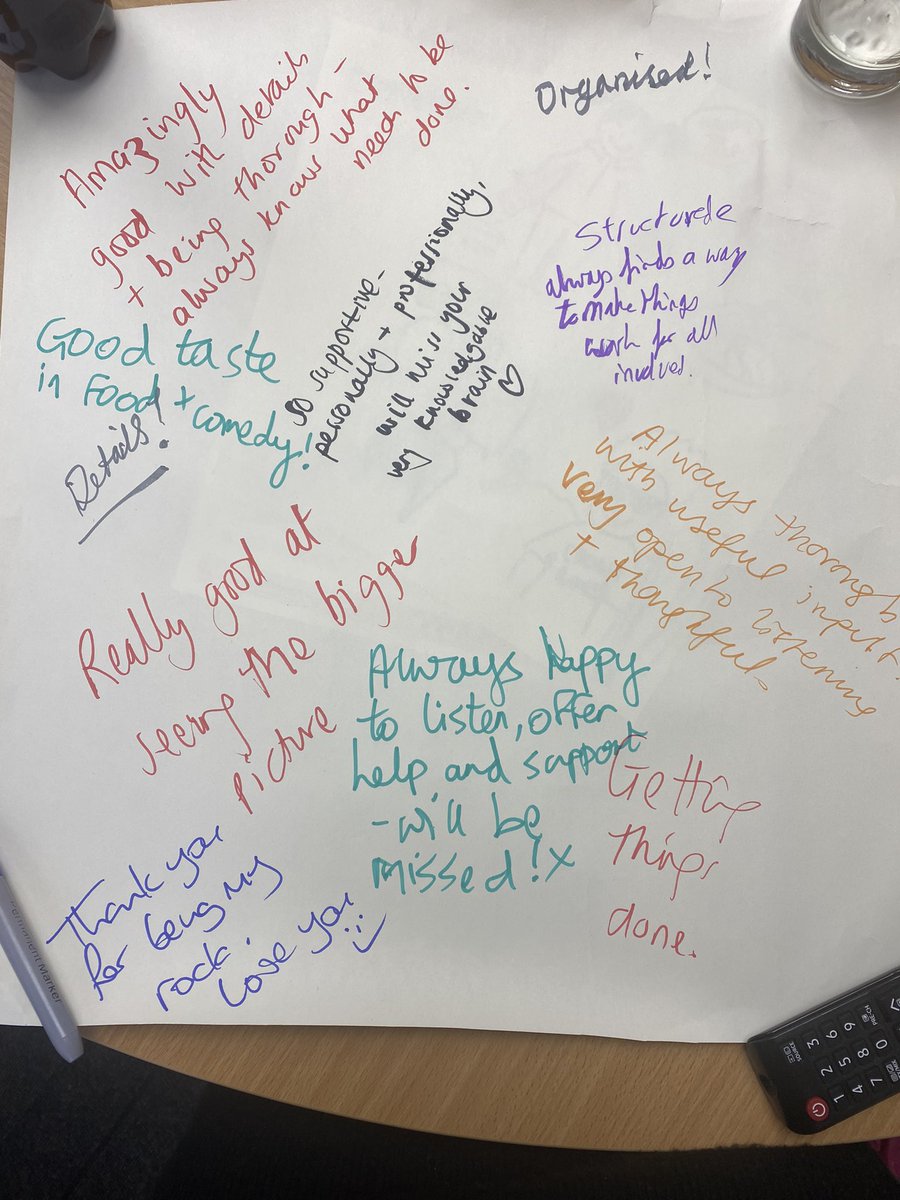 Amazingly
good with details
+ being thorough -
always know what
need to be
done.
Organised!
so supportive -
personally + professionally,
will miss your
very knowledgable
brain ♡
Structurede
always finds a way
to make things
work for all
involved.
Good taste
in Food + comedy!
Details!
Always thorough
with useful input
very open to listening
+ thoughtful
Really good at
seeing the bigger
picture
Always Happy
to listen, offer
help and support
- will be
missed! x
Getting
things
done.
Thank you
for being my
rock.
Love you
Permanent Marker
SOURCE
PRE-CH
1
2
3
4
5
6
7
8
9
0